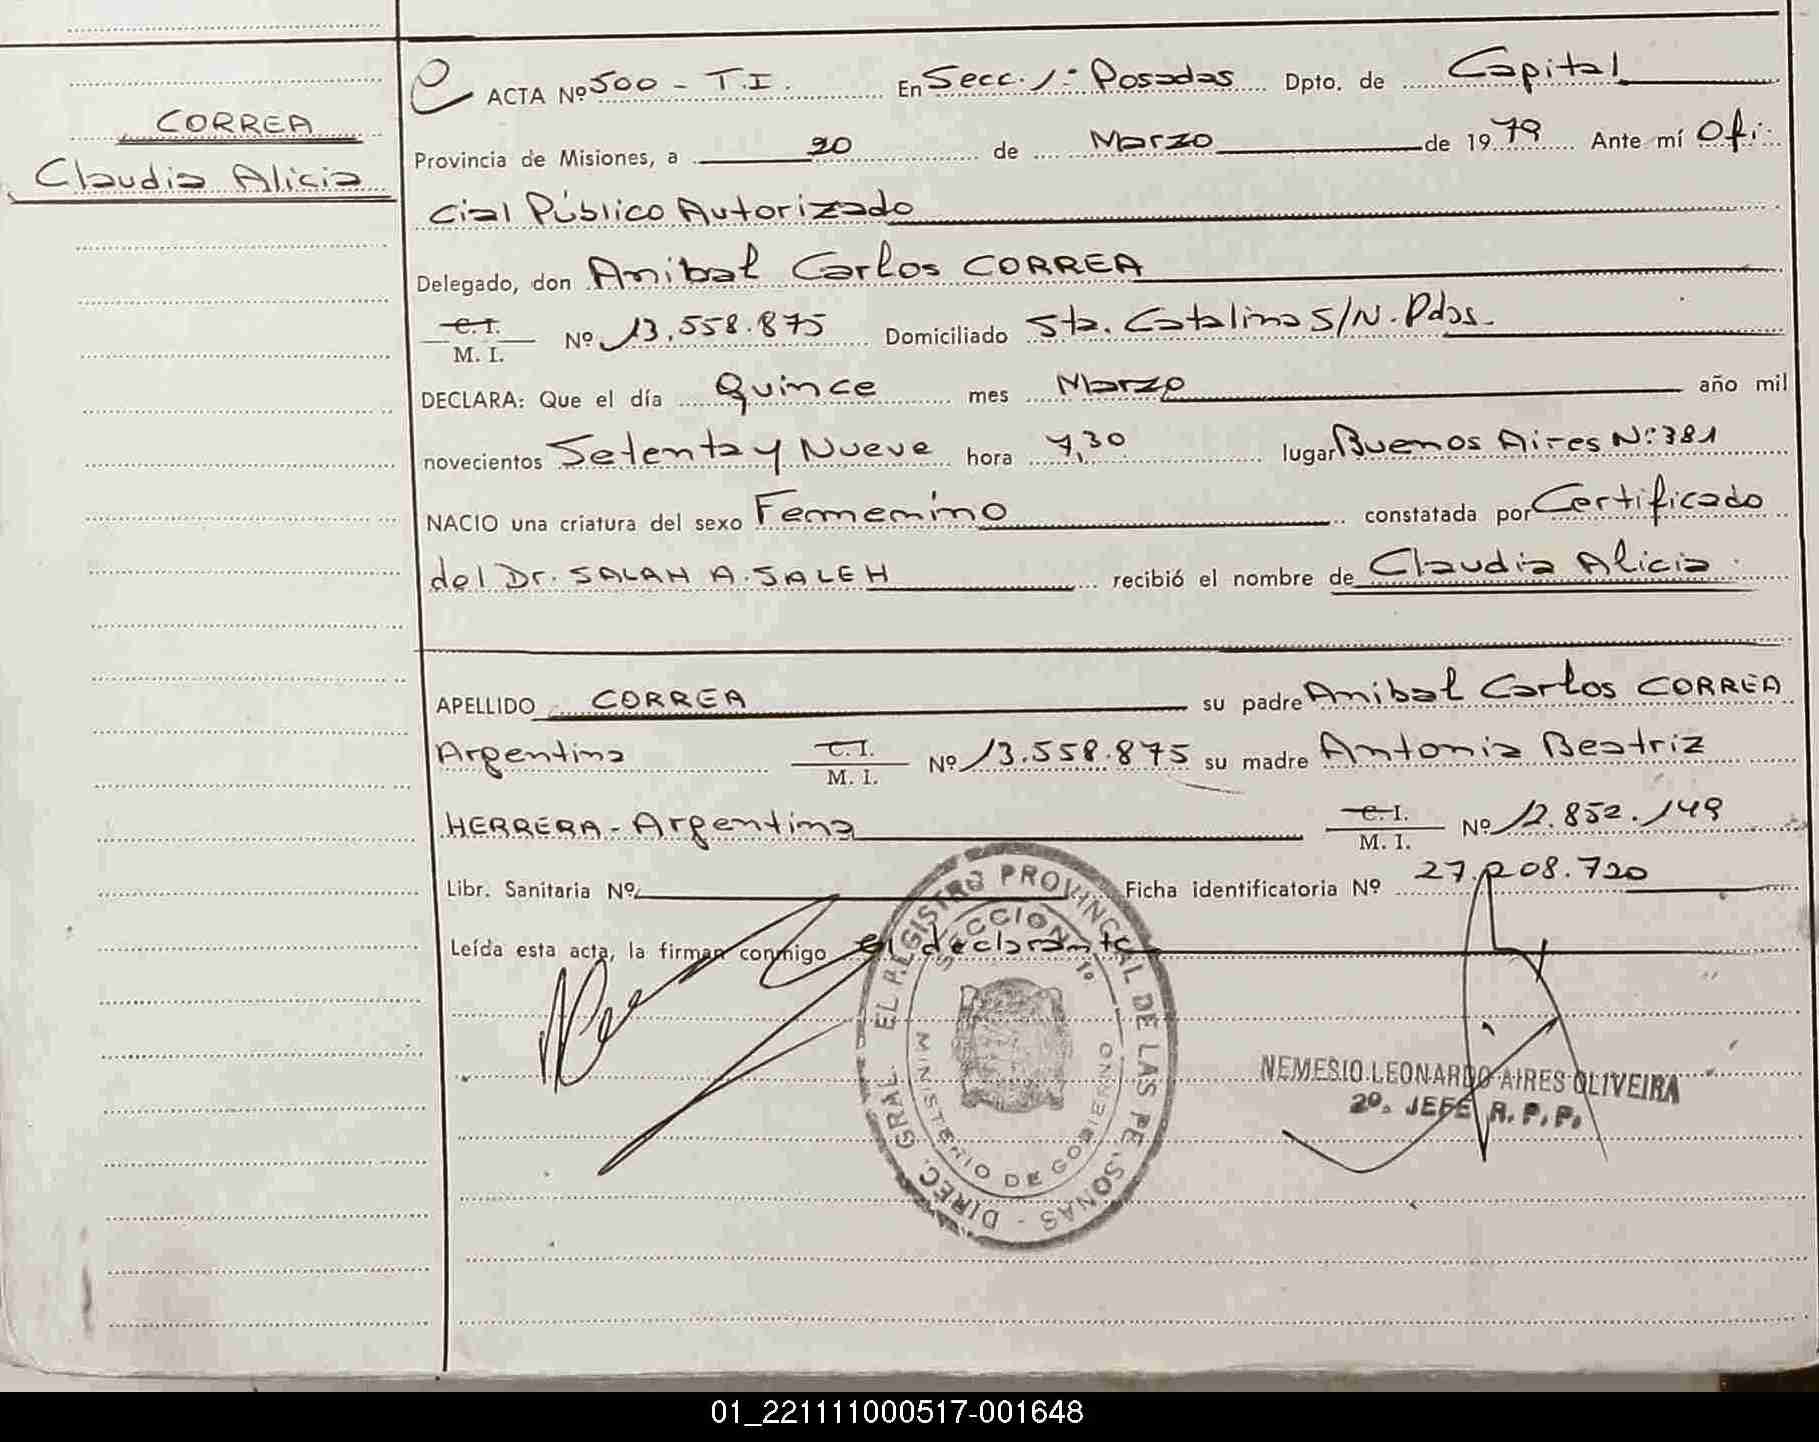 CORREA
Claudia Alicia
ACTA Nº 500 - T.I. En Secc. 1º Posadas Dpto. de Capital
Provincia de Misiones, a 20 de Marzo de 1979 Ante mí Ofi-
cial Público Autorizado
Delegado, don Anibal Carlos CORREA
C.I. / M. I. Nº 13.558.875 Domiciliado Sta. Catalina S/N. Pdas.
DECLARA: Que el día Quince mes Marzo año mil
novecientos Setenta y Nueve hora 7,30 lugar Buenos Aires Nº 381
NACIO una criatura del sexo Femenino constatada por Certificado
del Dr. SALAH A. SALEH recibió el nombre de Claudia Alicia.
APELLIDO CORREA su padre Anibal Carlos CORREA
Argentino C.I. / M. I. Nº 13.558.875 su madre Antonia Beatriz
HERRERA - Argentina C.I. / M. I. Nº 12.852.149
Libr. Sanitaria Nº Ficha identificatoria Nº 27.208.720
Leída esta acta, la firman conmigo el declarante
DIREC. GRAL. EL REGISTRO PROVINCIAL DE LAS PERSONAS -
SECCION 1º
MINISTERIO DE GOBIERNO
NEMESIO LEONARDO AIRES OLIVEIRA
2º. JEFE R. P. P.
01_221111000517-001648